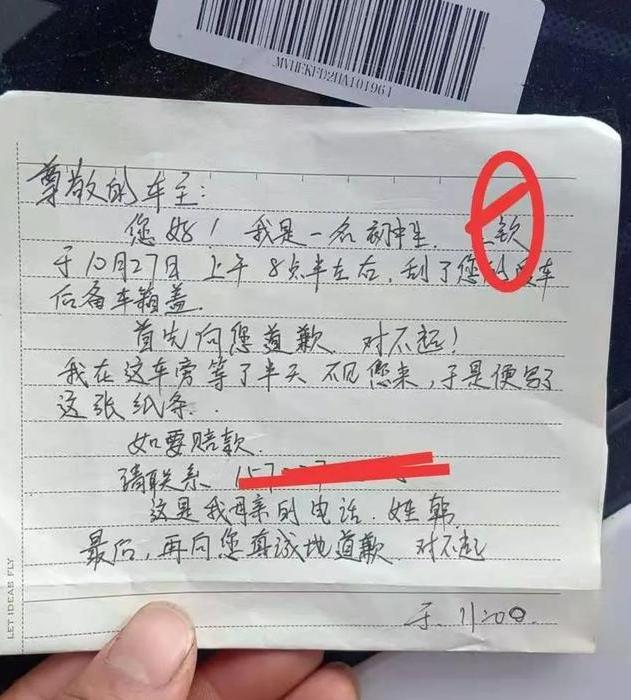 尊敬的车主:
您好! 我是一名初中生. 钦
于10月27日 上午 8点半左右, 刮了您的 车
后备车箱盖.
首先向您道歉. 对不起!
我在这车旁等了半天 不见您来, 于是便写了
这张纸条..
如要赔款.
请联系 157
这是我母亲的电话. 姓韩.
最后, 再向您真诚地道歉 对不起
于. 11:00.
LET IDEAS FLY